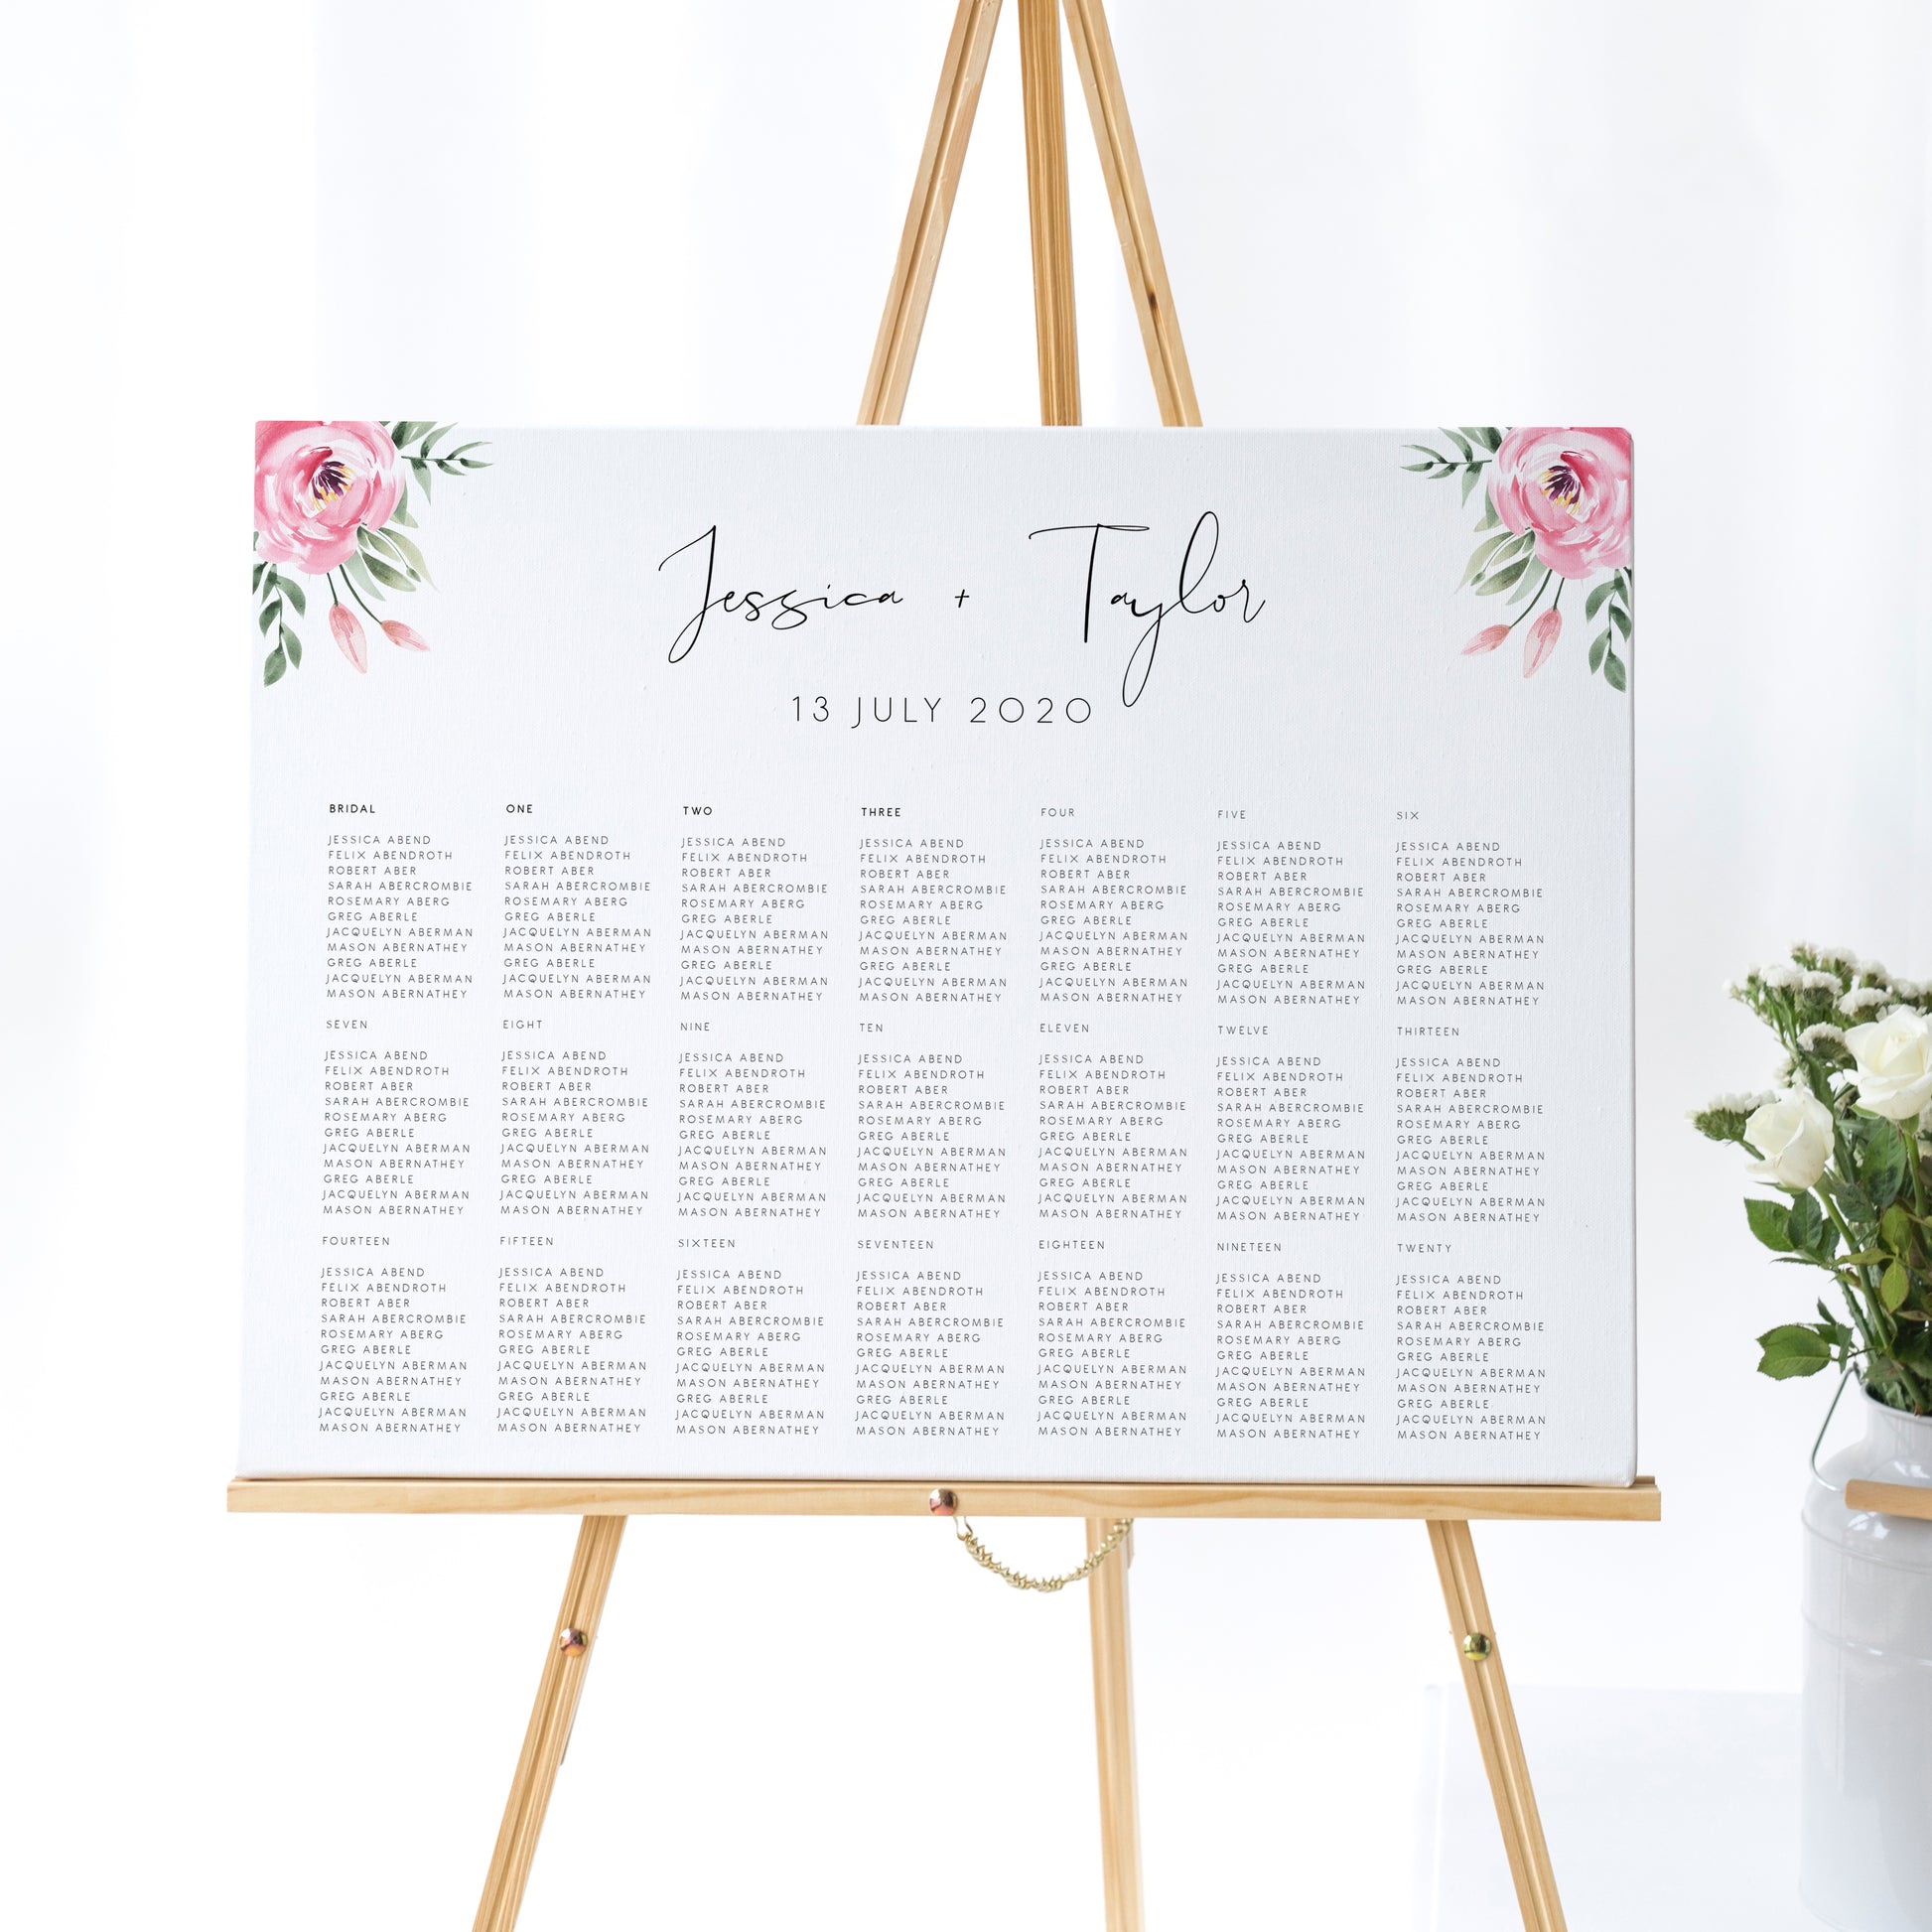 Jessica + Taylor
13 JULY 2020
BRIDAL
JESSICA ABEND
FELIX ABENDROTH
ROBERT ABER
SARAH ABERCROMBIE
ROSEMARY ABERG
GREG ABERLE
JACQUELYN ABERMAN
MASON ABERNATHEY
GREG ABERLE
JACQUELYN ABERMAN
MASON ABERNATHEY
ONE
JESSICA ABEND
FELIX ABENDROTH
ROBERT ABER
SARAH ABERCROMBIE
ROSEMARY ABERG
GREG ABERLE
JACQUELYN ABERMAN
MASON ABERNATHEY
GREG ABERLE
JACQUELYN ABERMAN
MASON ABERNATHEY
TWO
JESSICA ABEND
FELIX ABENDROTH
ROBERT ABER
SARAH ABERCROMBIE
ROSEMARY ABERG
GREG ABERLE
JACQUELYN ABERMAN
MASON ABERNATHEY
GREG ABERLE
JACQUELYN ABERMAN
MASON ABERNATHEY
THREE
JESSICA ABEND
FELIX ABENDROTH
ROBERT ABER
SARAH ABERCROMBIE
ROSEMARY ABERG
GREG ABERLE
JACQUELYN ABERMAN
MASON ABERNATHEY
GREG ABERLE
JACQUELYN ABERMAN
MASON ABERNATHEY
FOUR
JESSICA ABEND
FELIX ABENDROTH
ROBERT ABER
SARAH ABERCROMBIE
ROSEMARY ABERG
GREG ABERLE
JACQUELYN ABERMAN
MASON ABERNATHEY
GREG ABERLE
JACQUELYN ABERMAN
MASON ABERNATHEY
FIVE
JESSICA ABEND
FELIX ABENDROTH
ROBERT ABER
SARAH ABERCROMBIE
ROSEMARY ABERG
GREG ABERLE
JACQUELYN ABERMAN
MASON ABERNATHEY
GREG ABERLE
JACQUELYN ABERMAN
MASON ABERNATHEY
SIX
JESSICA ABEND
FELIX ABENDROTH
ROBERT ABER
SARAH ABERCROMBIE
ROSEMARY ABERG
GREG ABERLE
JACQUELYN ABERMAN
MASON ABERNATHEY
GREG ABERLE
JACQUELYN ABERMAN
MASON ABERNATHEY
SEVEN
JESSICA ABEND
FELIX ABENDROTH
ROBERT ABER
SARAH ABERCROMBIE
ROSEMARY ABERG
GREG ABERLE
JACQUELYN ABERMAN
MASON ABERNATHEY
GREG ABERLE
JACQUELYN ABERMAN
MASON ABERNATHEY
EIGHT
JESSICA ABEND
FELIX ABENDROTH
ROBERT ABER
SARAH ABERCROMBIE
ROSEMARY ABERG
GREG ABERLE
JACQUELYN ABERMAN
MASON ABERNATHEY
GREG ABERLE
JACQUELYN ABERMAN
MASON ABERNATHEY
NINE
JESSICA ABEND
FELIX ABENDROTH
ROBERT ABER
SARAH ABERCROMBIE
ROSEMARY ABERG
GREG ABERLE
JACQUELYN ABERMAN
MASON ABERNATHEY
GREG ABERLE
JACQUELYN ABERMAN
MASON ABERNATHEY
TEN
JESSICA ABEND
FELIX ABENDROTH
ROBERT ABER
SARAH ABERCROMBIE
ROSEMARY ABERG
GREG ABERLE
JACQUELYN ABERMAN
MASON ABERNATHEY
GREG ABERLE
JACQUELYN ABERMAN
MASON ABERNATHEY
ELEVEN
JESSICA ABEND
FELIX ABENDROTH
ROBERT ABER
SARAH ABERCROMBIE
ROSEMARY ABERG
GREG ABERLE
JACQUELYN ABERMAN
MASON ABERNATHEY
GREG ABERLE
JACQUELYN ABERMAN
MASON ABERNATHEY
TWELVE
JESSICA ABEND
FELIX ABENDROTH
ROBERT ABER
SARAH ABERCROMBIE
ROSEMARY ABERG
GREG ABERLE
JACQUELYN ABERMAN
MASON ABERNATHEY
GREG ABERLE
JACQUELYN ABERMAN
MASON ABERNATHEY
THIRTEEN
JESSICA ABEND
FELIX ABENDROTH
ROBERT ABER
SARAH ABERCROMBIE
ROSEMARY ABERG
GREG ABERLE
JACQUELYN ABERMAN
MASON ABERNATHEY
GREG ABERLE
JACQUELYN ABERMAN
MASON ABERNATHEY
FOURTEEN
JESSICA ABEND
FELIX ABENDROTH
ROBERT ABER
SARAH ABERCROMBIE
ROSEMARY ABERG
GREG ABERLE
JACQUELYN ABERMAN
MASON ABERNATHEY
GREG ABERLE
JACQUELYN ABERMAN
MASON ABERNATHEY
FIFTEEN
JESSICA ABEND
FELIX ABENDROTH
ROBERT ABER
SARAH ABERCROMBIE
ROSEMARY ABERG
GREG ABERLE
JACQUELYN ABERMAN
MASON ABERNATHEY
GREG ABERLE
JACQUELYN ABERMAN
MASON ABERNATHEY
SIXTEEN
JESSICA ABEND
FELIX ABENDROTH
ROBERT ABER
SARAH ABERCROMBIE
ROSEMARY ABERG
GREG ABERLE
JACQUELYN ABERMAN
MASON ABERNATHEY
GREG ABERLE
JACQUELYN ABERMAN
MASON ABERNATHEY
SEVENTEEN
JESSICA ABEND
FELIX ABENDROTH
ROBERT ABER
SARAH ABERCROMBIE
ROSEMARY ABERG
GREG ABERLE
JACQUELYN ABERMAN
MASON ABERNATHEY
GREG ABERLE
JACQUELYN ABERMAN
MASON ABERNATHEY
EIGHTEEN
JESSICA ABEND
FELIX ABENDROTH
ROBERT ABER
SARAH ABERCROMBIE
ROSEMARY ABERG
GREG ABERLE
JACQUELYN ABERMAN
MASON ABERNATHEY
GREG ABERLE
JACQUELYN ABERMAN
MASON ABERNATHEY
NINETEEN
JESSICA ABEND
FELIX ABENDROTH
ROBERT ABER
SARAH ABERCROMBIE
ROSEMARY ABERG
GREG ABERLE
JACQUELYN ABERMAN
MASON ABERNATHEY
GREG ABERLE
JACQUELYN ABERMAN
MASON ABERNATHEY
TWENTY
JESSICA ABEND
FELIX ABENDROTH
ROBERT ABER
SARAH ABERCROMBIE
ROSEMARY ABERG
GREG ABERLE
JACQUELYN ABERMAN
MASON ABERNATHEY
GREG ABERLE
JACQUELYN ABERMAN
MASON ABERNATHEY